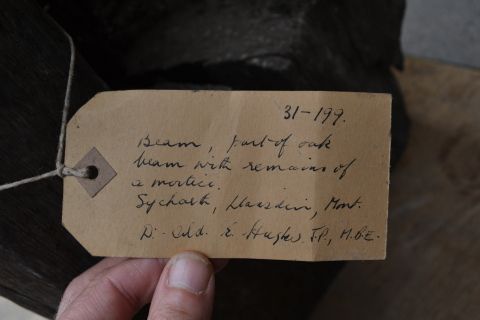 31-199.
Beam, part of oak
beam with remains of
a mortice.
Sycharth, Llansilin, Mont.
D. Ald. E. Hughes J.P., M.B.E.